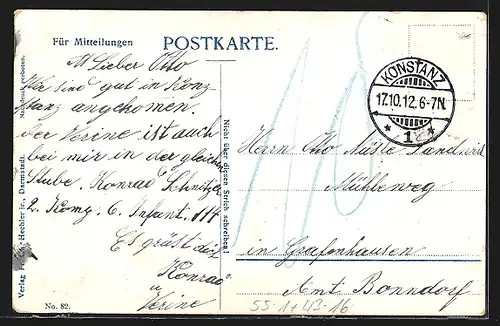 Für Mitteilungen
POSTKARTE.
M Lieber Otto
Wir sind gut in Konz-
stanz angekomen.
der Verine ist auch
bei mir in der gleichen
Stube. Konrad Schnitzler
2. Komp. 6. Infant. 114
Es grüst dich
Konrad
u
Verine
KONSTANZ
17.10.12.6-7N.
* 1 *
Herrn Otto Landwirt
Mühleweg
in Grafenhausen
Amt Bonndorf
Nachdruck verboten.
Hechler jr., Darmstadt.
Verlag
Nicht über diesen Strich schreiben!
No. 82.